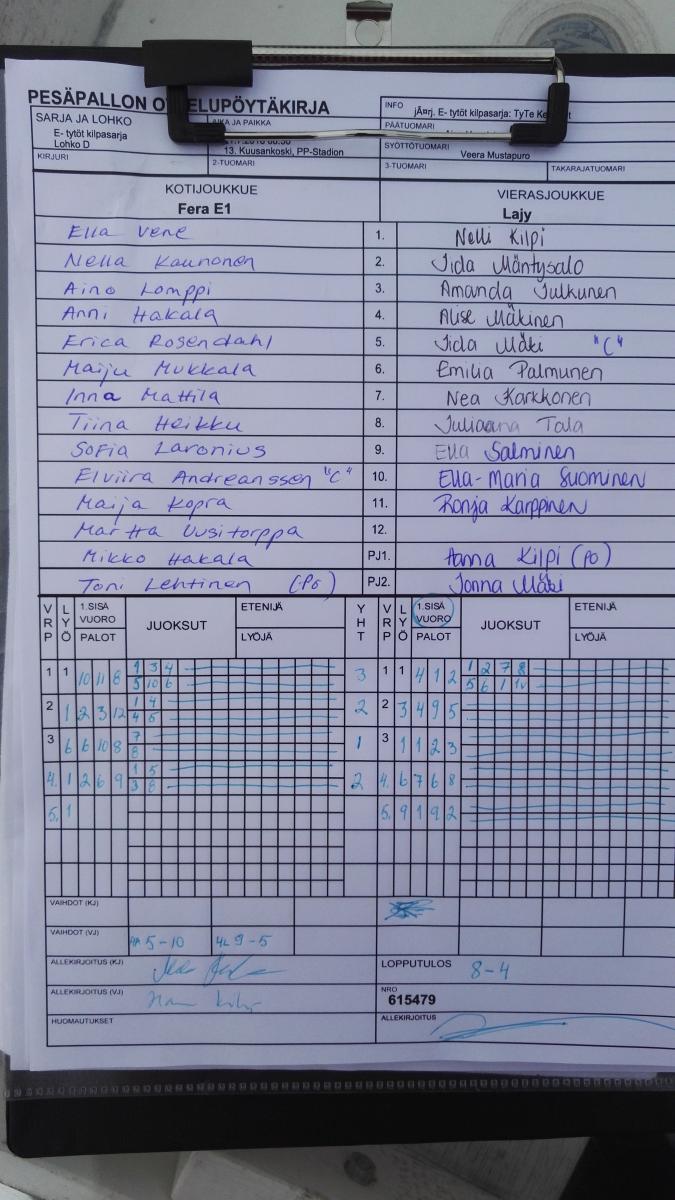 PESÄPALLON OTTELUPÖYTÄKIRJA
SARJA JA LOHKO
E- tytöt kilpasarja
Lohko D
AIKA JA PAIKKA
13. Kuusankoski, PP-Stadion
INFO
järj. E- tytöt kilpasarja: TyTe
PÄÄTUOMARI
SYÖTTÖTUOMARI
Veera Mustapuro
KIRJURI
2-TUOMARI
3-TUOMARI
TAKARAJATUOMARI
KOTIJOUKKUE VIERASJOUKKUE
Fera E1 Lajy
Ella Vene 1. Nelli Kilpi
Nella Kaunonen 2. Iida Mäntysalo
Aino Lomppi 3. Amanda Julkunen
Anni Hakala 4. Alise Mäkinen
Erica Rosendahl 5. Iida Mäki "C"
Maiju Mukkala 6. Emilia Palmunen
Inna Mattila 7. Nea Karkkonen
Tiina Heikku 8. Juliaana Tala
Sofia Laronius 9. Ella Salminen
Elviira Andreanssen "C" 10. Ella-Maria Suominen
Maija Kopra 11. Ronja Karppinen
Martta Uusitorppa 12.
Mikko Hakala PJ1. Hanna Kilpi (PO)
Toni Lehtinen (PO) PJ2. Jonna Mäki
VRP LYÖ 1.SISÄ VUORO PALOT JUOKSUT ETENIJÄ LYÖJÄ YHT VRP LYÖ 1.SISÄ VUORO PALOT JUOKSUT ETENIJÄ LYÖJÄ
1 1 10 11 8 1 3 4 3 1 1 4 1 2 1 2 7 8
5 10 6 5 6 1
2 1 2 3 12 1 4 2 2 3 4 9 5
4 6
3 6 6 10 8 7 1 3 1 1 2 3
8
4. 1 2 6 9 1 5 2 4. 6 7 6 8
3 8
5. 1 5. 9 1 9 2
VAIHDOT (KJ)
VAIHDOT (VJ) 5-10 4L 9-5
ALLEKIRJOITUS (KJ) LOPPUTULOS 8-4
ALLEKIRJOITUS (VJ) NRO
615479
HUOMAUTUKSET ALLEKIRJOITUS